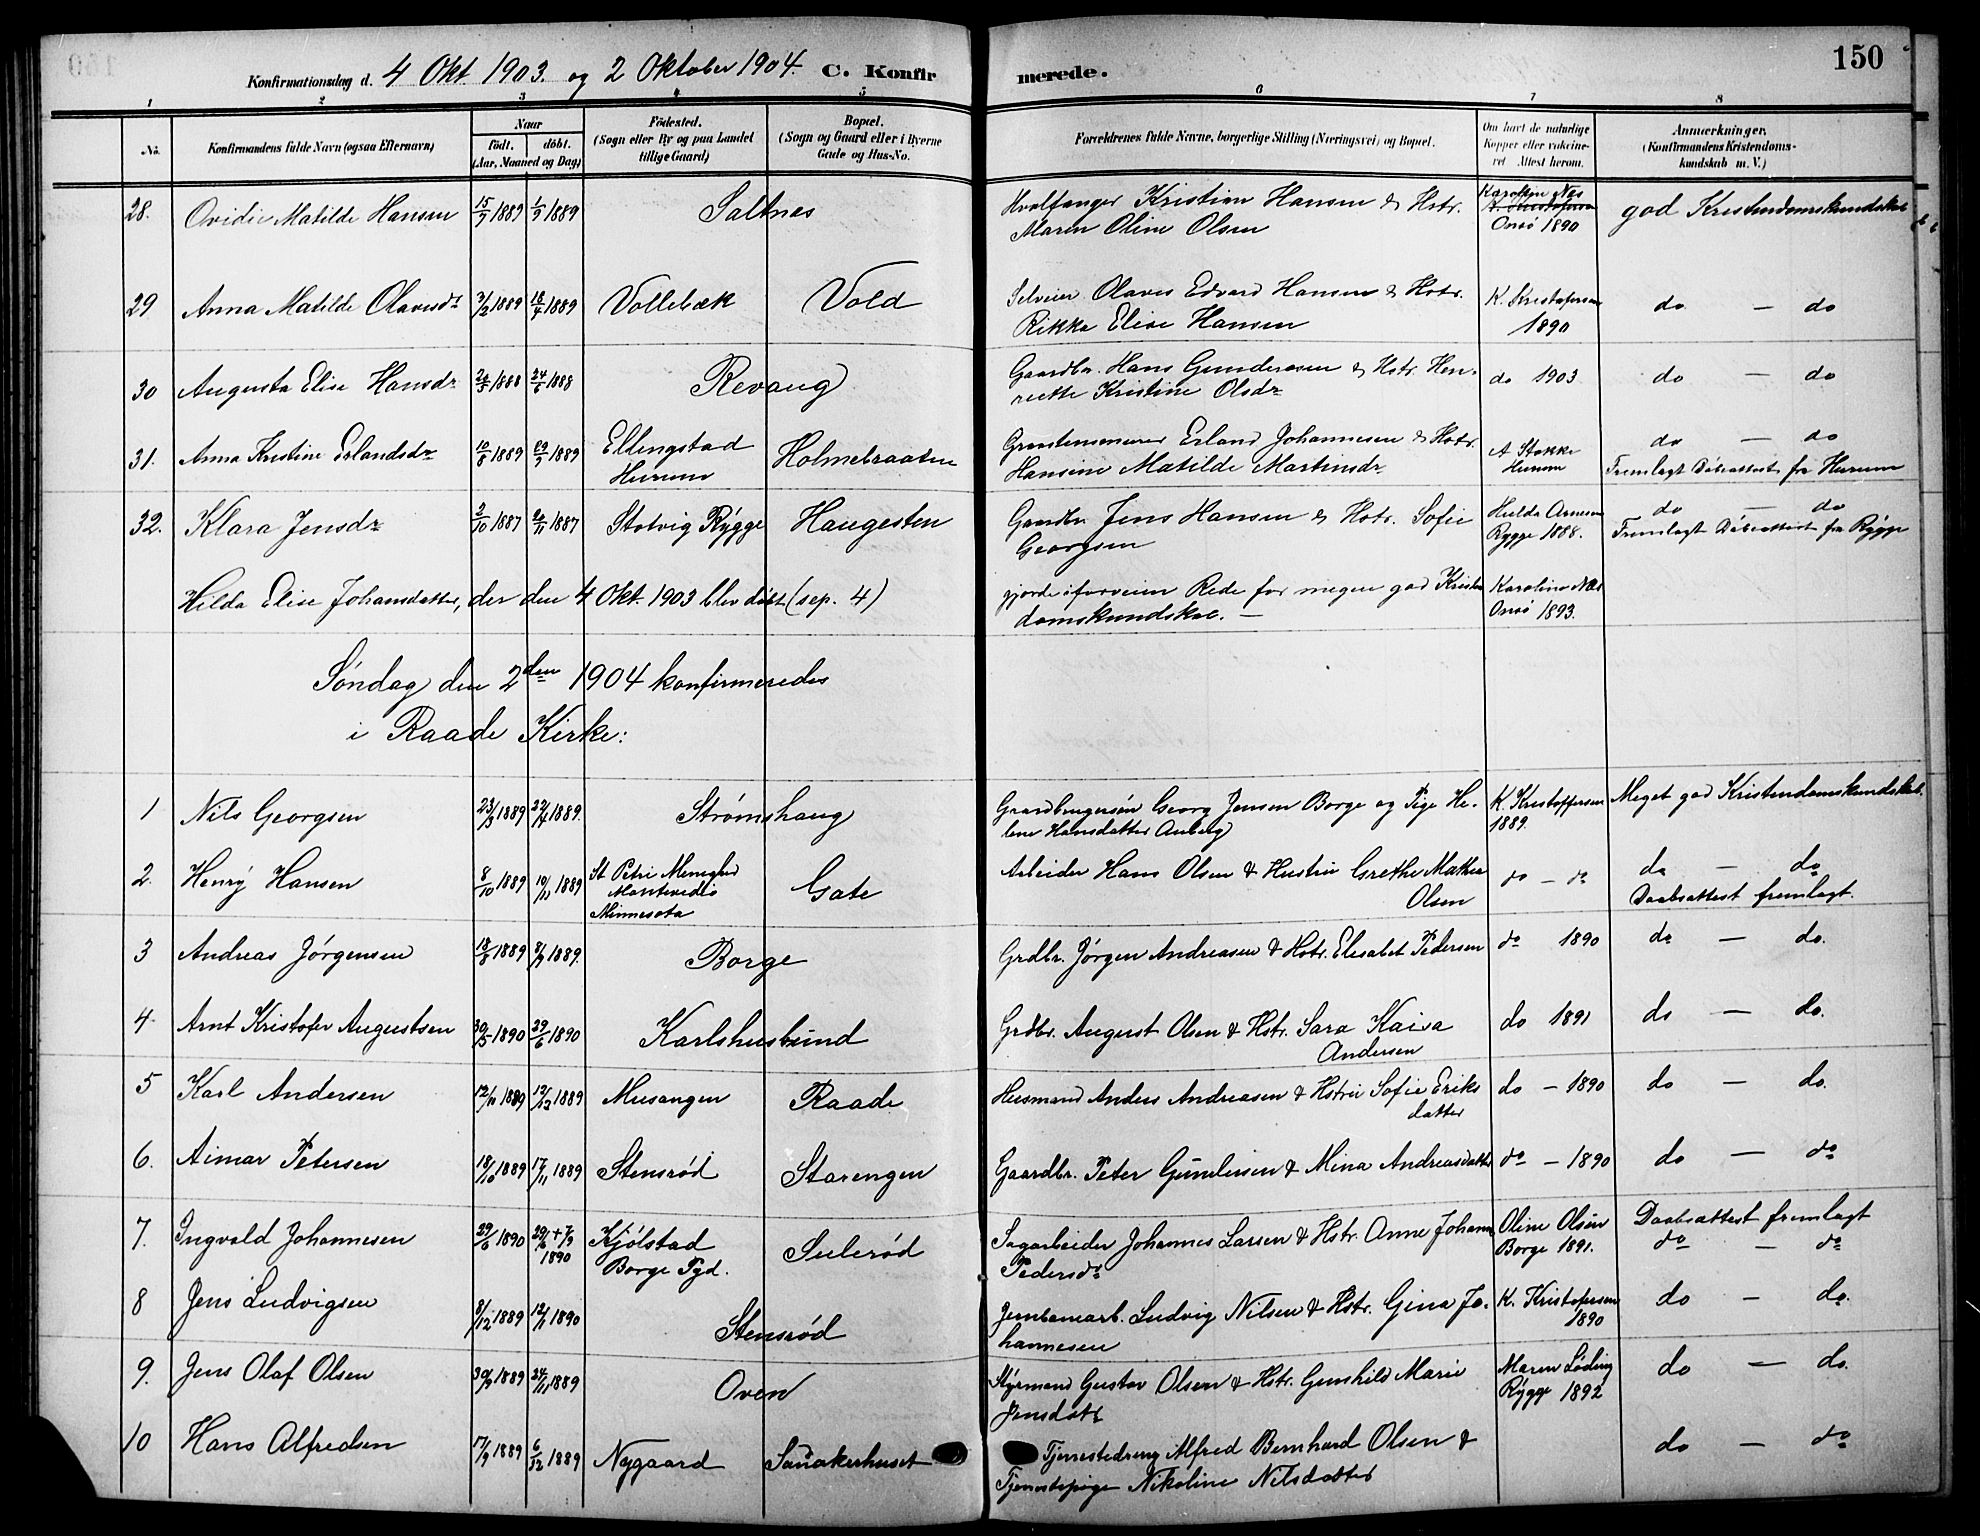 150
Konfirmationsdag d. 4 Okt. 1903. og 2 Oktober 1904. C. Konfir merede.
1 2 3 4 5 6 7 8
No. Konfirmandens fulde Navn (ogsaa Efternavn)
Naar
födt. döbt.
(Aar, Maaned og Dag)
Födested.
(Sogn eller By og paa Landet
tillige Gaard)
Bopæl.
(Sogn og Gaard eller i Byerne
Gade og Hus-No.
Forældrenes fulde Navne, borgerlige Stilling (Næringsvei) og Bopæl.
Om havt de naturlige
Kopper eller vakcine-
ret Attest herom.
Anmærkninger,
(Konfirmandens Kristendoms-
kundskab m. V.)
28. Ovidie Matilde Hansen 15/7 1889 1/9 1889 Saltnes Hvalfanger Kristian Hansen & Hstr. Karoline Næs god Kristendomskundskab
Maren Oline Olsen Onsö 1890
29 Anna Matilde Olavsdt 3/2 1889 18/4 1889 Vollebæk Vold Selveier Olaves Edvard Hansen & Hstr. K. Kristofersen do — do
Rikka Elise Hansen 1890
30 Augusta Elise Hansdr 1888 24/6 1888 Revaug Gaardbr. Hans Gundersen & Hstr. Hen- do 1903 do — do
riette Kristine Olsdr
31. Anna Kristine Erlandsdr 10/8 1889 29/9 1889 Ellingstad Holmebraaten Erland Johannesen & Hstr. A Stokke do — do
Hurum Hansine Matilde Martinsdr Hurum Fremlagt Döbsattest fra Hurum
32. Klara Jensdr 2/10 1887 20/11 1887 Stotvig Rygge Haugesten Gaardbr. Jens Hansen & Hstr. Sofie Hulda Arnesen do — do
Georgsen Rygge 1888. Fremlagt Döbsattest fra Rygge
Hilda Elise Johansdatter, der den 4 Okt. 1903 blev döbt (sep. 4) gjorde iforveien Rede for megen god Kristen Karoline Næs
domskundskab. — Onsö 1893.
Söndag den 2den 1904 konfirmeredes
i Raade Kirke:
1 Nils Georgsen 23/3 1889 22/4 1889. Strømshaug Gaardbrugersön Georg Jensen Borge og Pige He- K. Kristoffersen Meget god Kristendomskundskab.
lene Hansdatter Auberg 1889.
2. Henry Hansen 8/10 1889 10/11 1889 St Petri Menighed Gate Arbeider Hans Olsen & Hustru Grethe Mathea do — do do — do
Montevideo Olsen Daabsattest fremlagt.
Minnesota
3 Andreas Jørgensen 18/8 1889 8/9 1889. Borge Grdbr. Jørgen Andreasen & Hstr. Elisabet Pedersen do 1890 do — do.
4 Arnt Kristofer Augustsen 30/5 1890 29/6 1890 Karlshusbund Grdbr. August Olsen & Hstr. Sara Kaisa do 1891 do — do.
Andersen
5 Karl Andersen 12/11 1889 1889 Musangen Raade Husmand Anders Andreasen & Hstru Sofie Eriks do — 1890 do — do.
datter
6. Aimar Petersen 18/10 1889 17/11 1889 Stensrød Starengen Gaardbr. Peter Gundersen & Mina Andreasdatter do — 1890 do — do
7. Ingvald Johannesen 29/6 1890 29/6 + 7/9 Kjölstad Sulerød Sagarbeider Johannes Larsen & Hstr. Anne Johanne Oline Olsen Daabsattest fremlagt
1890 Borge Pgd. Pedersdr Borge 1891. do — do
8 Jens Ludvigsen 8/12 1889 12/1 1890 Stensrød Jernbanearb. Ludvig Nilsen & Hstr. Gina Jo- K. Kristofersen do — do.
hannesen 1890
9. Jens Olaf Olsen 30/9 1889 24/11 1889 Oven Styrmand Gustav Olsen & Hstr. Gunhild Marie Maren Løding do — do.
Jensdatr Rygge 1892
10 Hans Alfredsen 17/9 1889 6/12 1889 Nygaard Sauakerhuset Tjenestedreng Alfred Bernhard Olsen & do — do
Tjenestepige Nikoline Nilsdatter